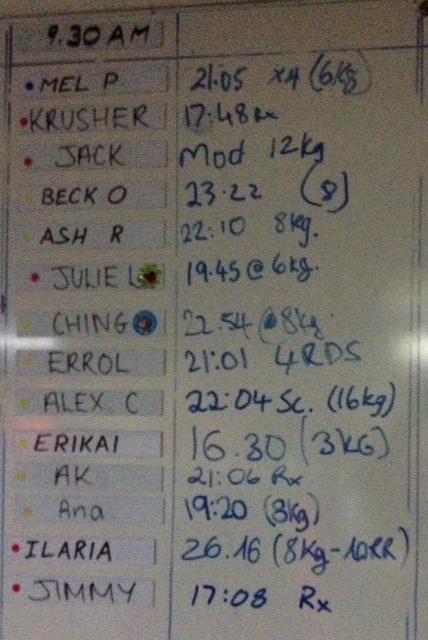 9.30 AM
MEL P 21.05 x4 (6kg)
KRUSHER 17:48 Rx
JACK Mod 12kg
BECK O 23.22 (8)
ASH R 22:10 8kg.
JULIE L 19.45 @ 6kg.
CHING 22.54 @ 8kg
ERROL 21:01 4RDS
ALEX C 22:04 Sc. (16kg)
ERIKAI 16.30 (3KG)
AK 21:06 Rx
Ana 19:20 (8kg)
ILARIA 26.16 (8Kg-10RR)
JIMMY 17:08 Rx